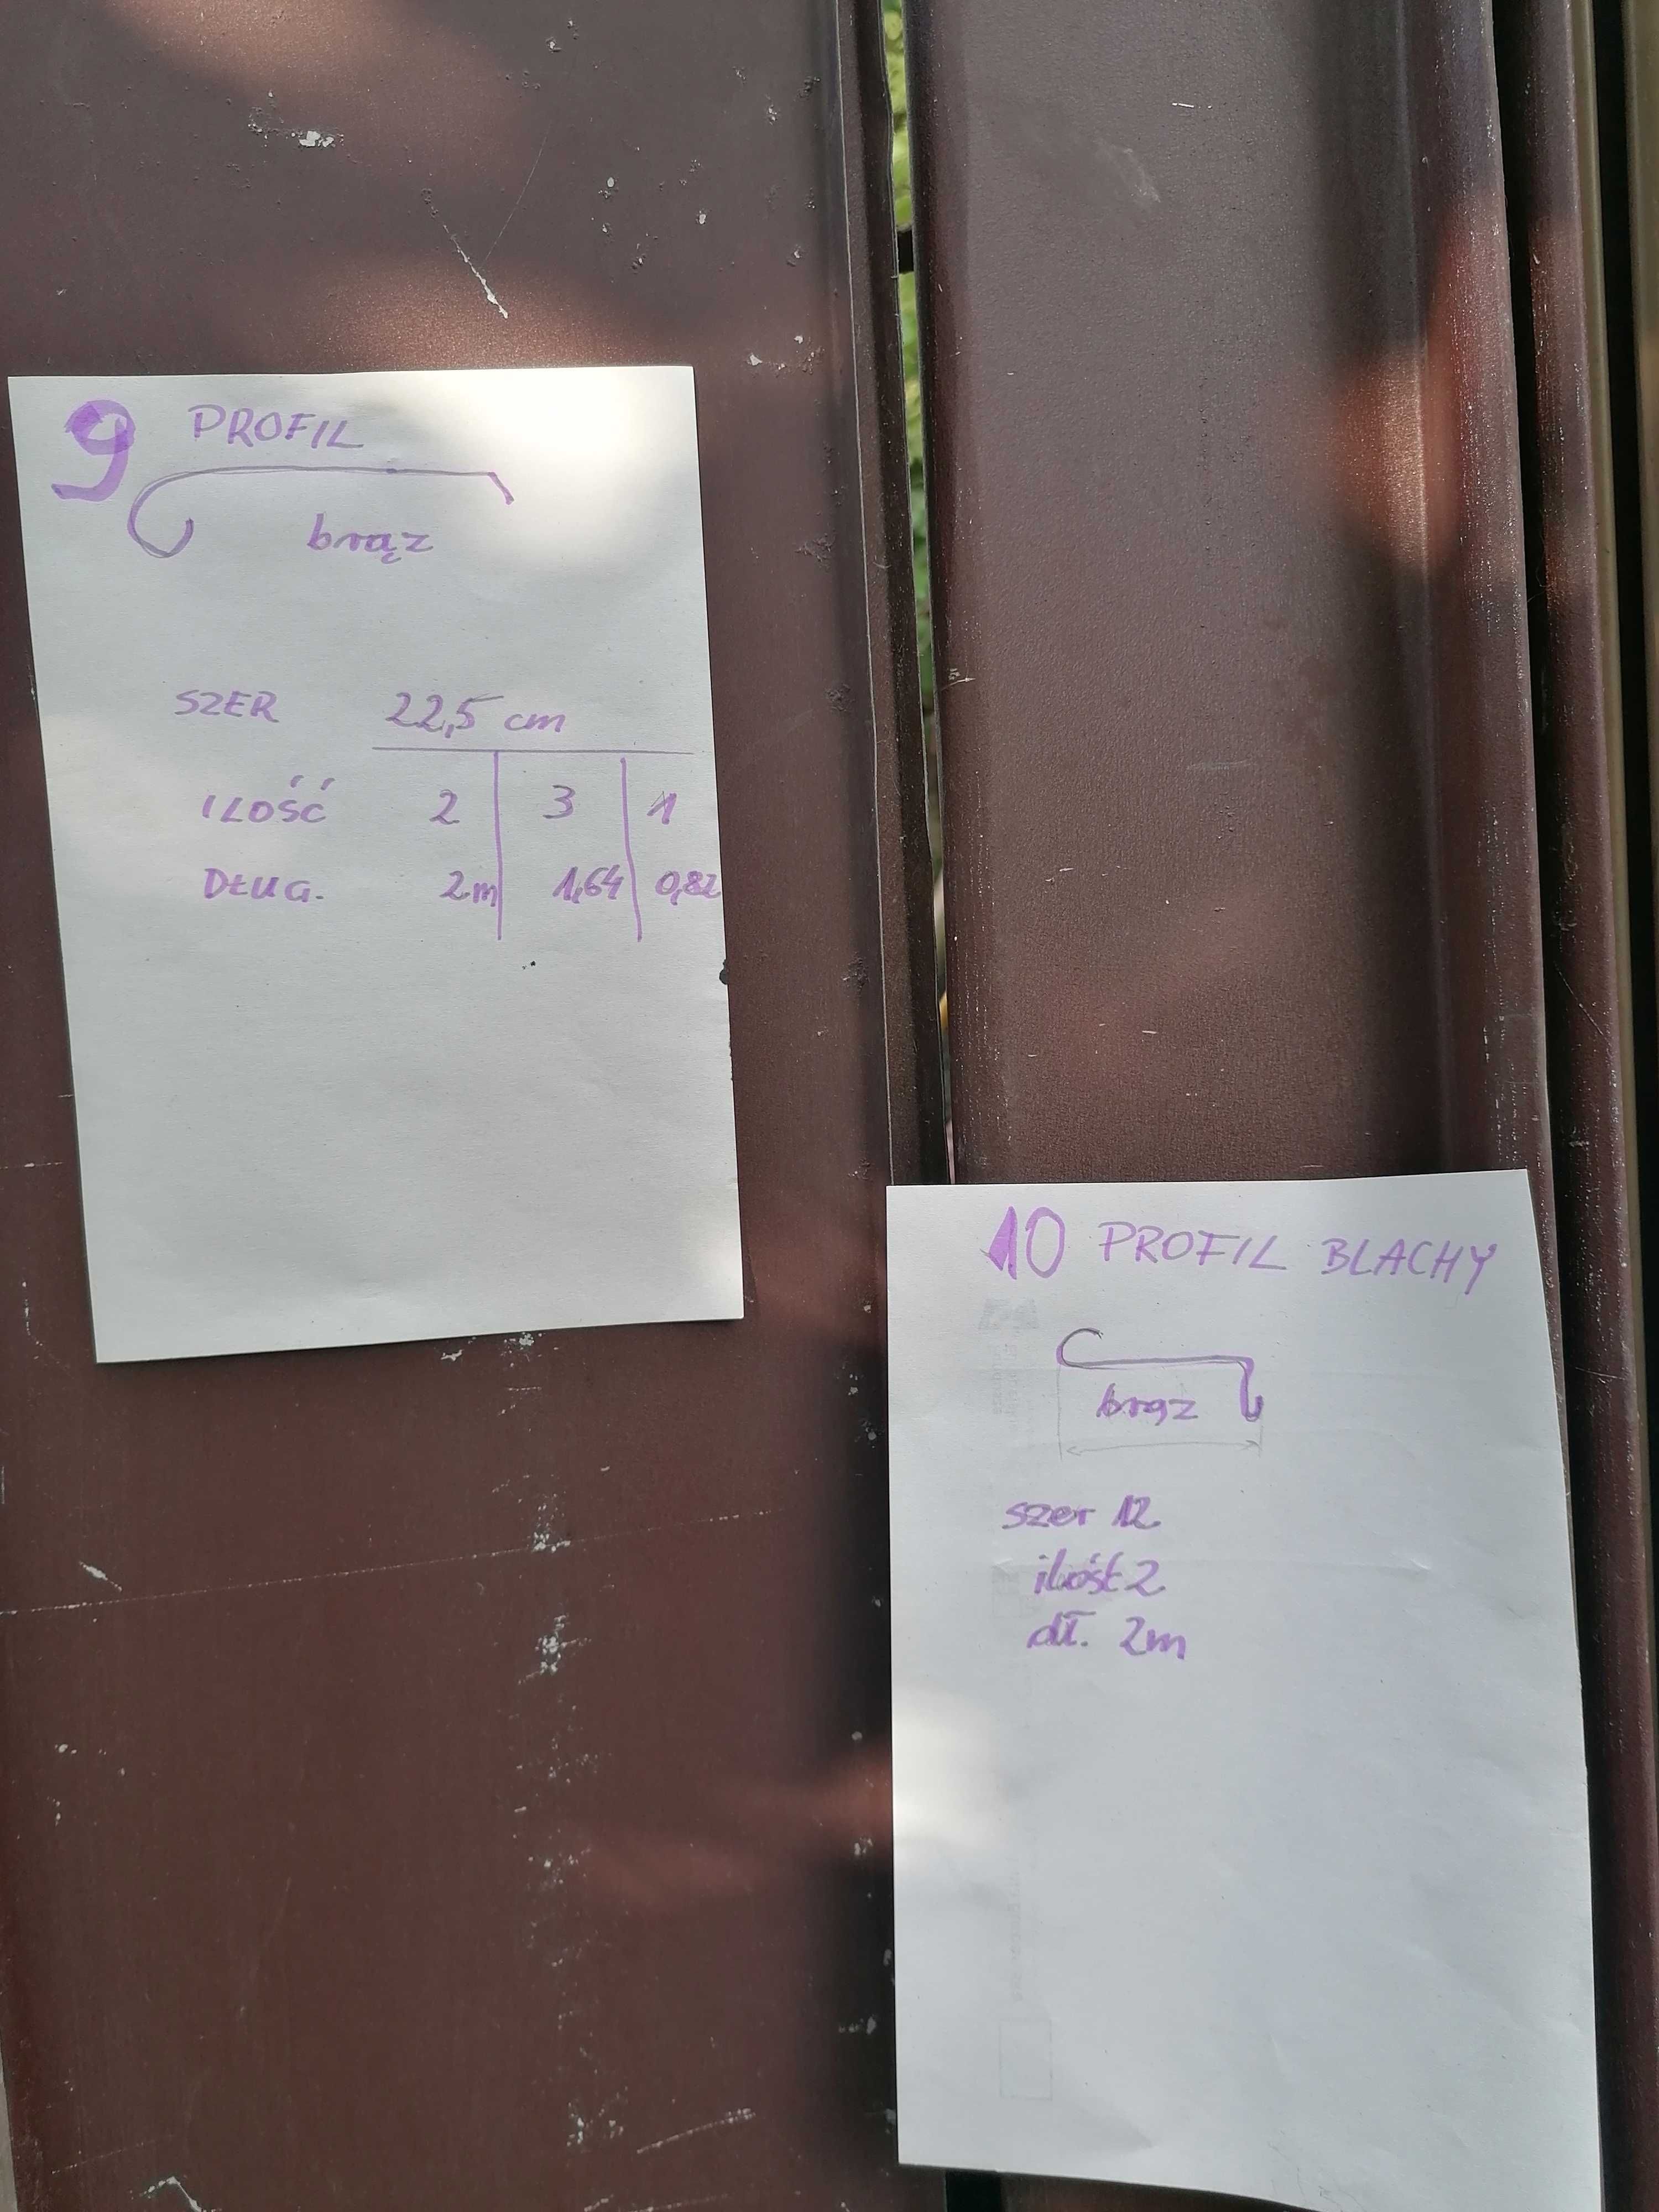 9 PROFIL
brąz
SZER 22,5 cm
ILOŚĆ 2 3 1
DŁUG. 2m 1,64 0,82
10 PROFIL BLACHY
brąz
szer 12
ilość 2
dł. 2m